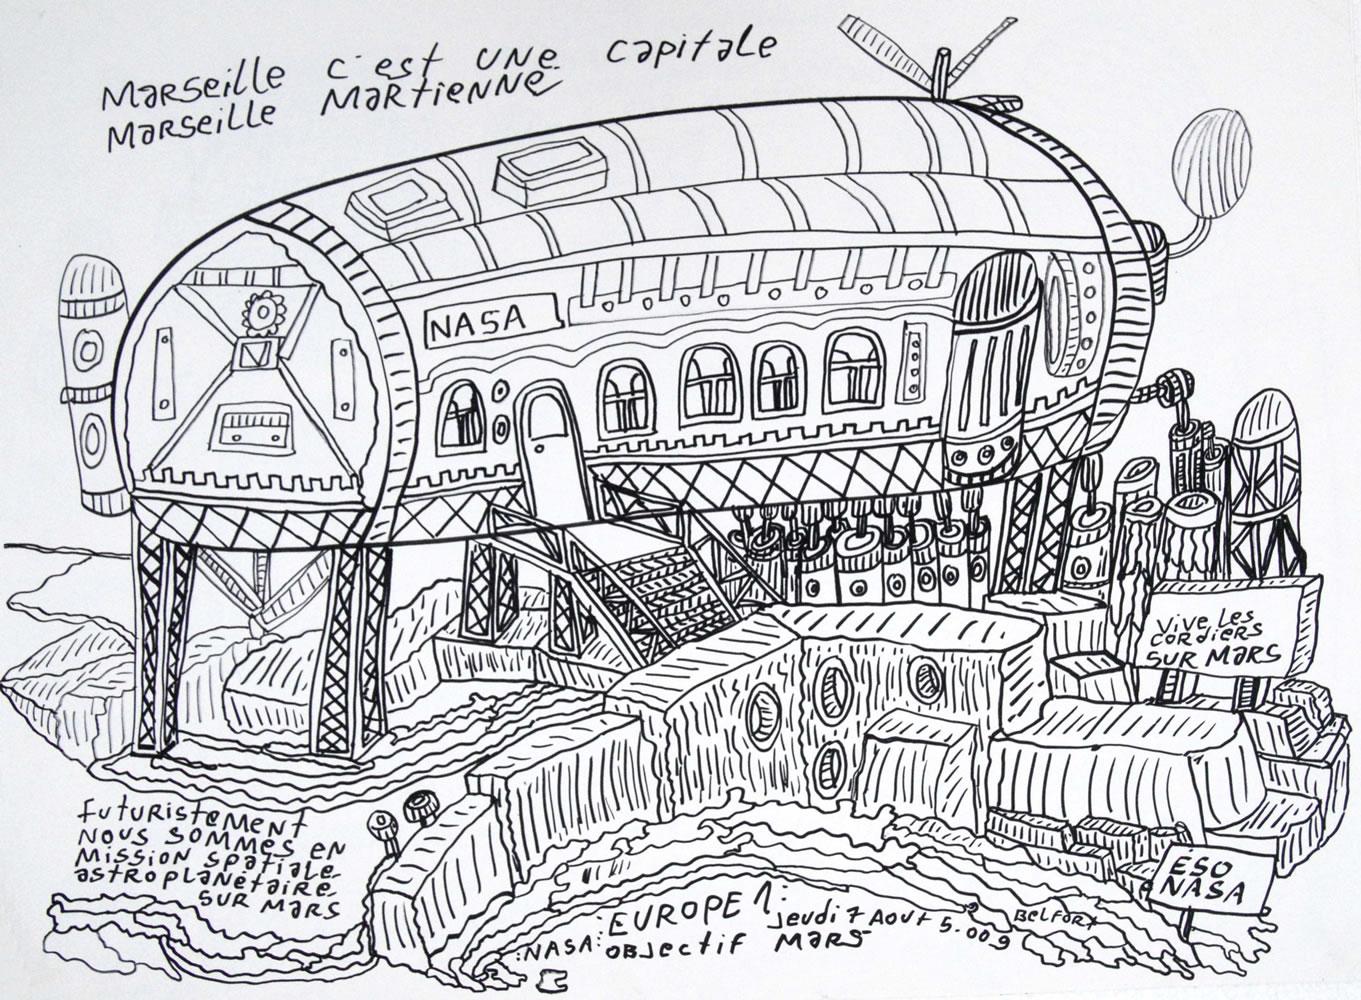 Marseille c'est UNE capitale
Marseille Martienne
NASA
Vive Les
cordiers
SUR Mars
futuristement
nous sommes en
mission spatiale
astroplanétaire
sur Mars
ESO
NASA
EUROPE 1: jeudi 7 Aout 5.009
Belfort
:NASA: objectif Mars